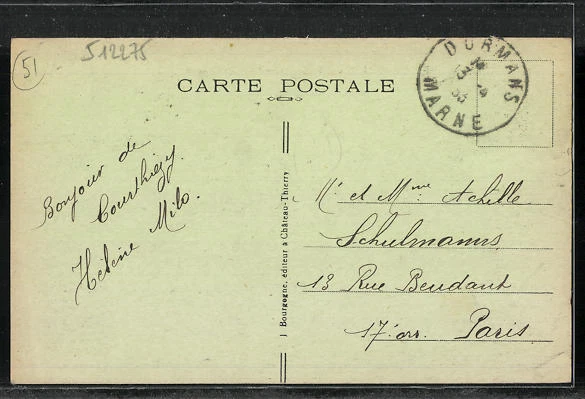 51
512275
CARTE POSTALE
DORMANS
MARNE
Bonjour de
Courthiézy
Hélène Milo.
1 Bourgogne, éditeur à Château-Thierry
Mr et Mme Achille
Schulmanns
13 Rue Beudant
17e arr. Paris